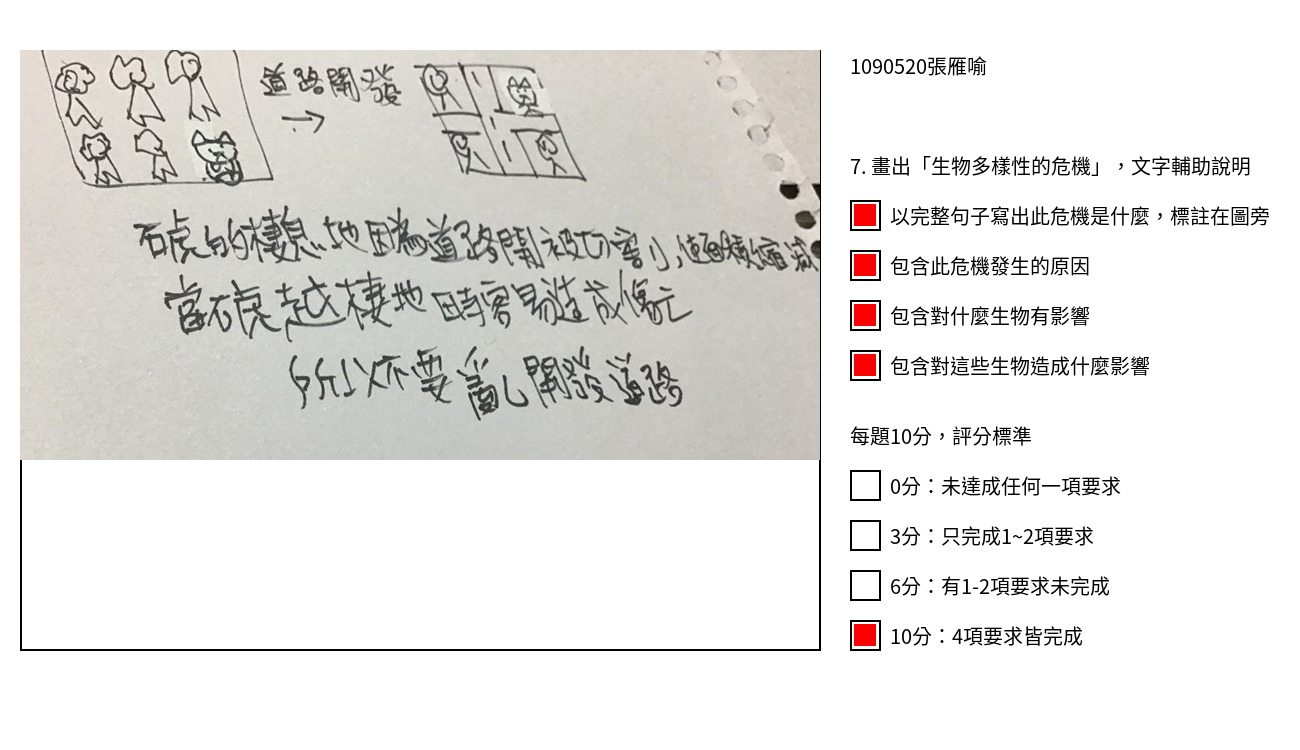 道路開發
石虎的棲息地因為道路開被切割,使面積縮減
當石虎越棲地時容易造成傷亡
所以不要亂開發道路
1090520張雁喻
7. 畫出「生物多樣性的危機」，文字輔助說明
以完整句子寫出此危機是什麼，標註在圖旁
包含此危機發生的原因
包含對什麼生物有影響
包含對這些生物造成什麼影響
每題10分，評分標準
0分：未達成任何一項要求
3分：只完成1~2項要求
6分：有1-2項要求未完成
10分：4項要求皆完成